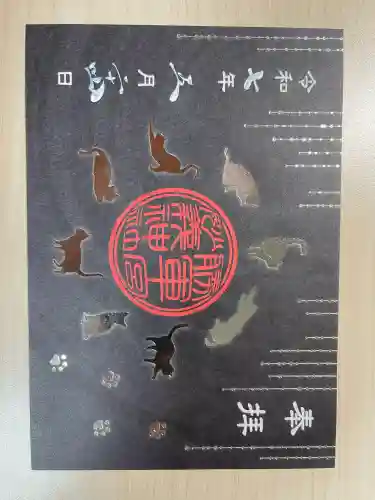 奉拝
令和七年五月二十四日